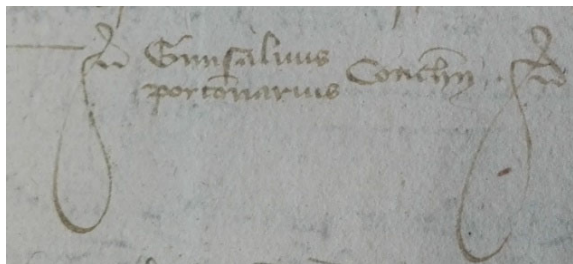 Gunsaluus
portonarius Conchen